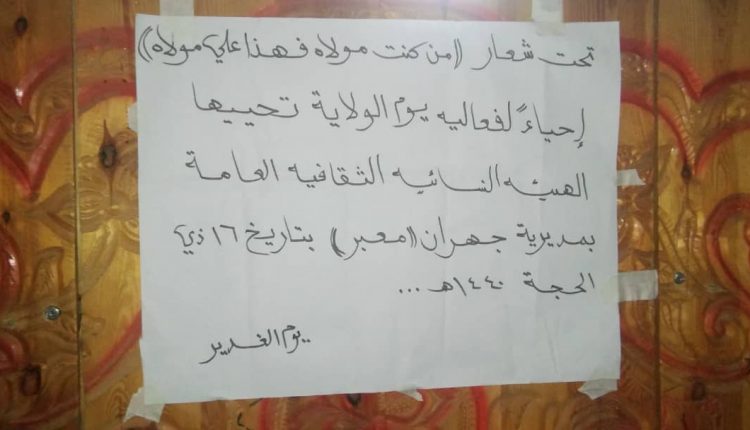 تحت شعار ((من كنت مولاه فهذا علي مولاه))
إحياءً لفعاليه يوم الولاية تحييها
الهيئه النسائيه الثقافيه العامة
بمديرية جهران ((معبر)) بتاريخ ١٦ ذي
الحجة ١٤٤٠هـ ...
يوم الغدير